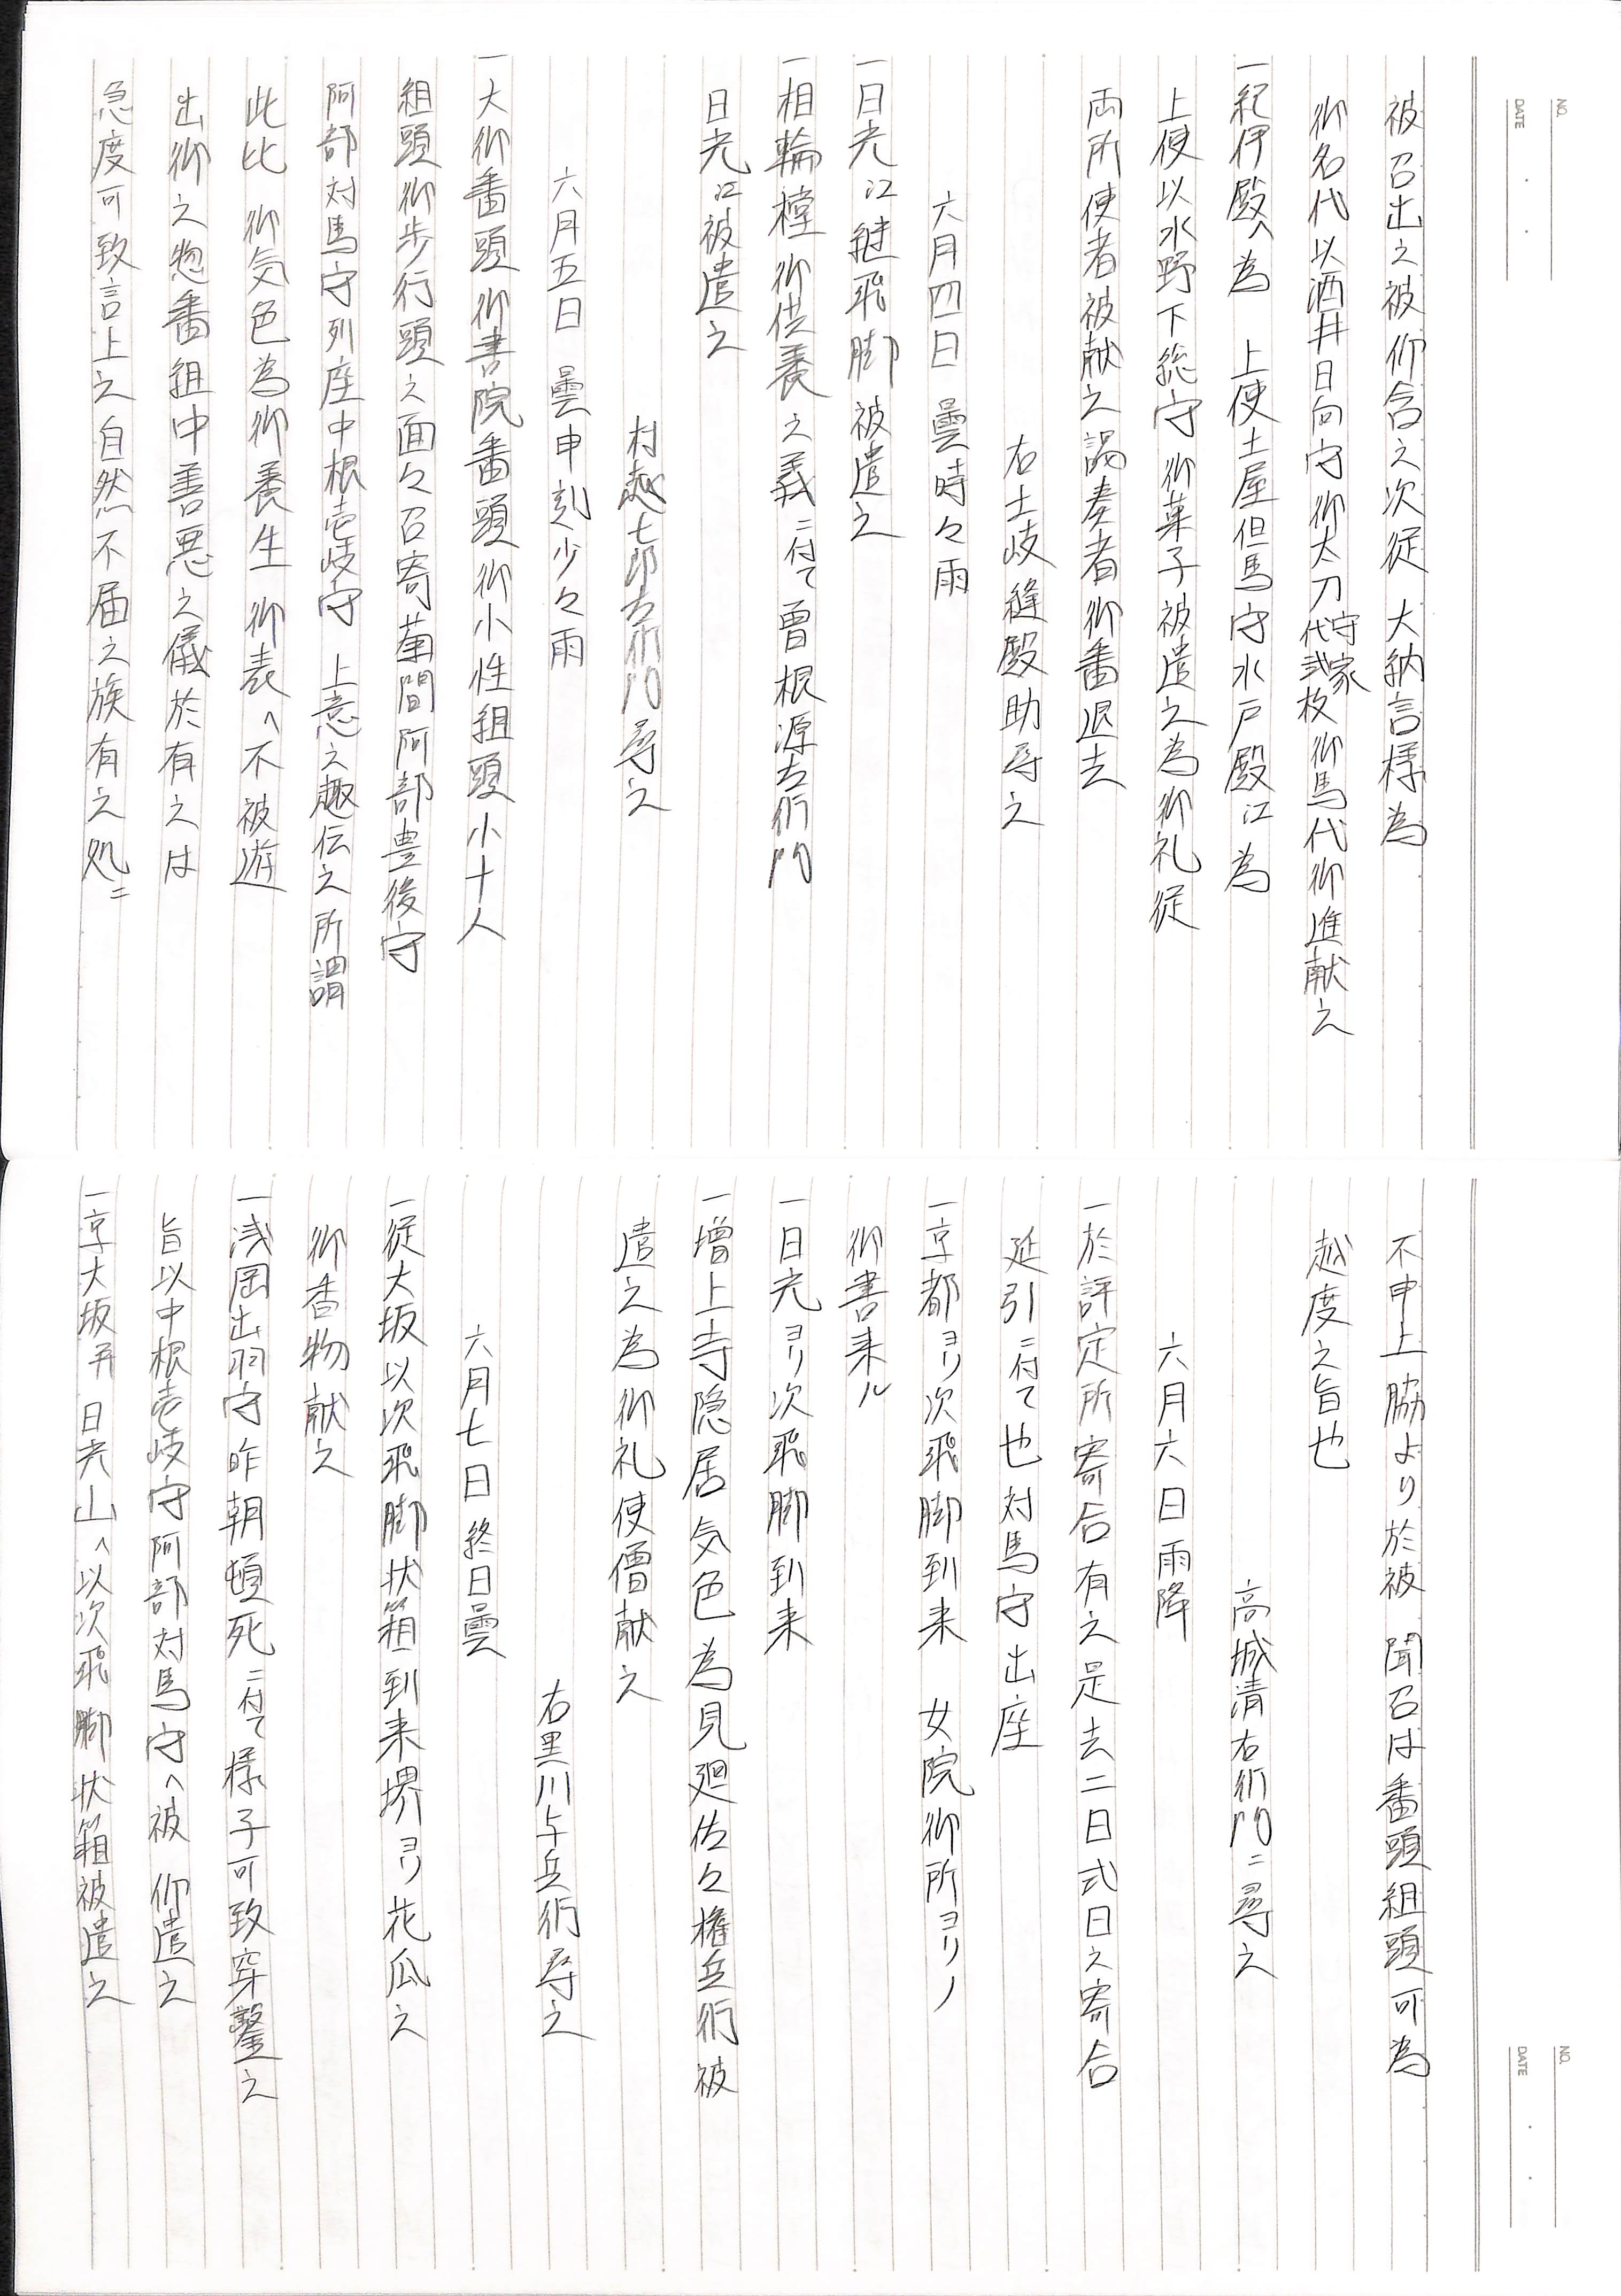 NO.
DATE
被召出之被仰含之次従 大納言様為
御名代以酒井日向守御太刀守家代弐枚御馬代御進献之
一紀伊殿へ為 上使土屋但馬守水戸殿江為
上使以水野下総守御菓子被遣之為御礼従
両所使者被献之謁奏者御番退去
右土岐縫殿助尋之
六月四日 曇時々雨
一日光江継飛脚被遣之
一相輪樘御供養之義ニ付て曽根源左衛門
日光江被遣之
村越七郎左衛門尋之
六月五日 曇申刻少々雨
一大御番頭御書院番頭御小性組頭小十人
組頭御歩行頭之面々召寄菊間阿部豊後守
阿部対馬守列座中根壱岐守 上意之趣伝之所謂
此比 御気色為御養生 御表へ不被遊
出御之惣番組中善悪之儀於有之は
急度可致言上之自然不届之族有之処ニ
NO.
DATE
不申上脇より於被 聞召は番頭組頭可為
越度之旨也
高城清右衛門ニ尋之
六月六日雨降
一於評定所寄合有之是去二日式日之寄合
延引ニ付て也対馬守出座
一京都ヨリ次飛脚到来 女院御所ヨリノ
御書来ル
一日光ヨリ次飛脚到来
一増上寺隠居気色為見廻佐々権兵衛被
遣之為御礼使僧献之
右黒川与兵衛尋之
六月七日終日曇
一従大坂以次飛脚状箱到来堺ヨリ花瓜之
御香物献之
一浅岡出羽守昨朝頓死ニ付て様子可致穿鑿之
旨以中根壱岐守阿部対馬守へ被 仰遣之
一京大坂并 日光山へ以次飛脚状箱被遣之